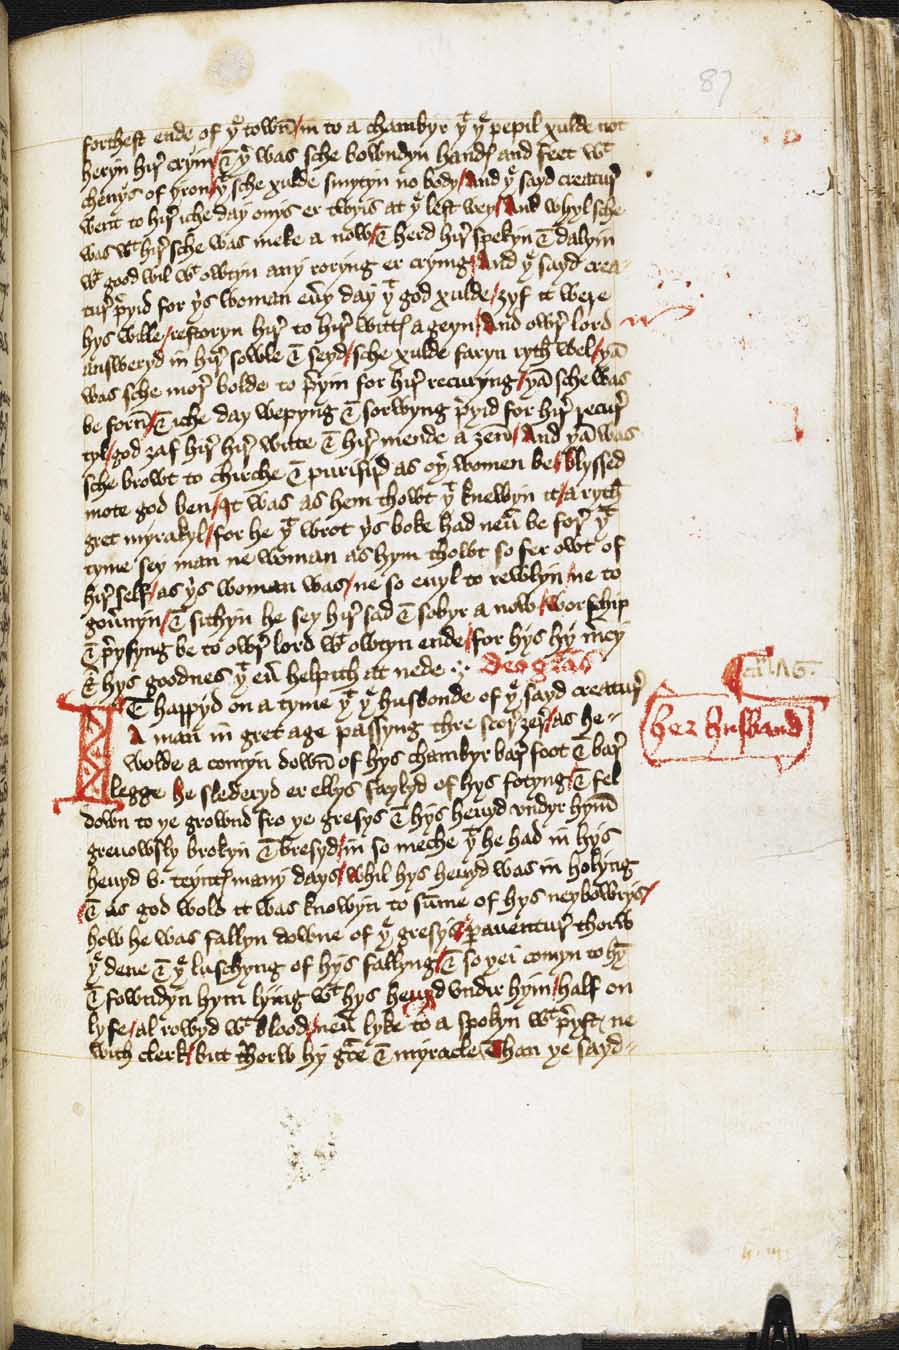 87
forthest ende of þe town̄ / in to a chambyr þt þe pepil xulde not
heryn hir cryin / & þer was sche bowndyn handys and feet wt
chenys of yron / þt sche xulde smytyn no body / And þe sayd creatur
went to hir iche day onys er twyis at þe lest wey / And whyl sche
was wt hir sche was meke a now / & herd hir spekyn & dalyin
wt good wil wt owtyn any roryng er crying / And þe sayd crea-
tur p̃yid for þis woman euy day þt god xulde / ȝyf it were
hys wille / restoryn hir to hir wittys ageyn / And owr lord
answeryd in hir sowle & seyd / sche xulde faryn ryth wel / þā
was sche mor bolde to p̃yin for hir recuryng / þā sche was
be forn̄ / & iche day wepyng & sorwyng p̃yid for hir recur
tyl / god ȝaf hir hir witte & hir mende a ȝen̄ / And þā was
sche browt to chirche & purifijd as oþr women be / blyssed
mote god ben / It was as hem thowt þt knewyn it / a ryth
gret myrakyl / for he þt wrot þis boke had neuyr be for þt
tyme sey man ne woman as hym thowt so fer owt of
hir self / as þis woman was / ne so euyl to rewlyn / ne to
gouernyn / & sithyn he sey hir sad & sobyr a now / worschip
& p̃ysyng be to owr lord wt owtyn ende / for hys hy mcy
& hys goodnes þt euyr helpith at nede ∴ Deo gr̄as
It happyd on a tyme þt þe husbonde of þe sayd creatur
A man in gret age passyng thre scor ȝer / as he=
wolde a comyn down̄ of hys chambyr bar foot & bar
legge he slederyd er ellys faylyd of hys fotyng & fel
down to þe grownd fro þe gresys & hys heuyd vndyr hym̄
greuowsly brokyn & bresyd / in so meche þt he had in hys
heuyd v. teyntys many days / whil hys heuyd was in holyng
/ & as god wold it was knowyn to sūme of hys neybowrys /
how he was fallyn downe of þe gresys / p̱auentur thorw
þe dene & þe luschyng of hys fallyng / & so þei comyn to hȳ
& fowndyn hym lying wt hys heuyd vndir hym / half on
lyfe / al rowyd wt blood / neuyr lyke to a spokyn wt p̃yst ne
with clerk / but thorw hy gr̄ce & myracle Than þe sayd=
her husband